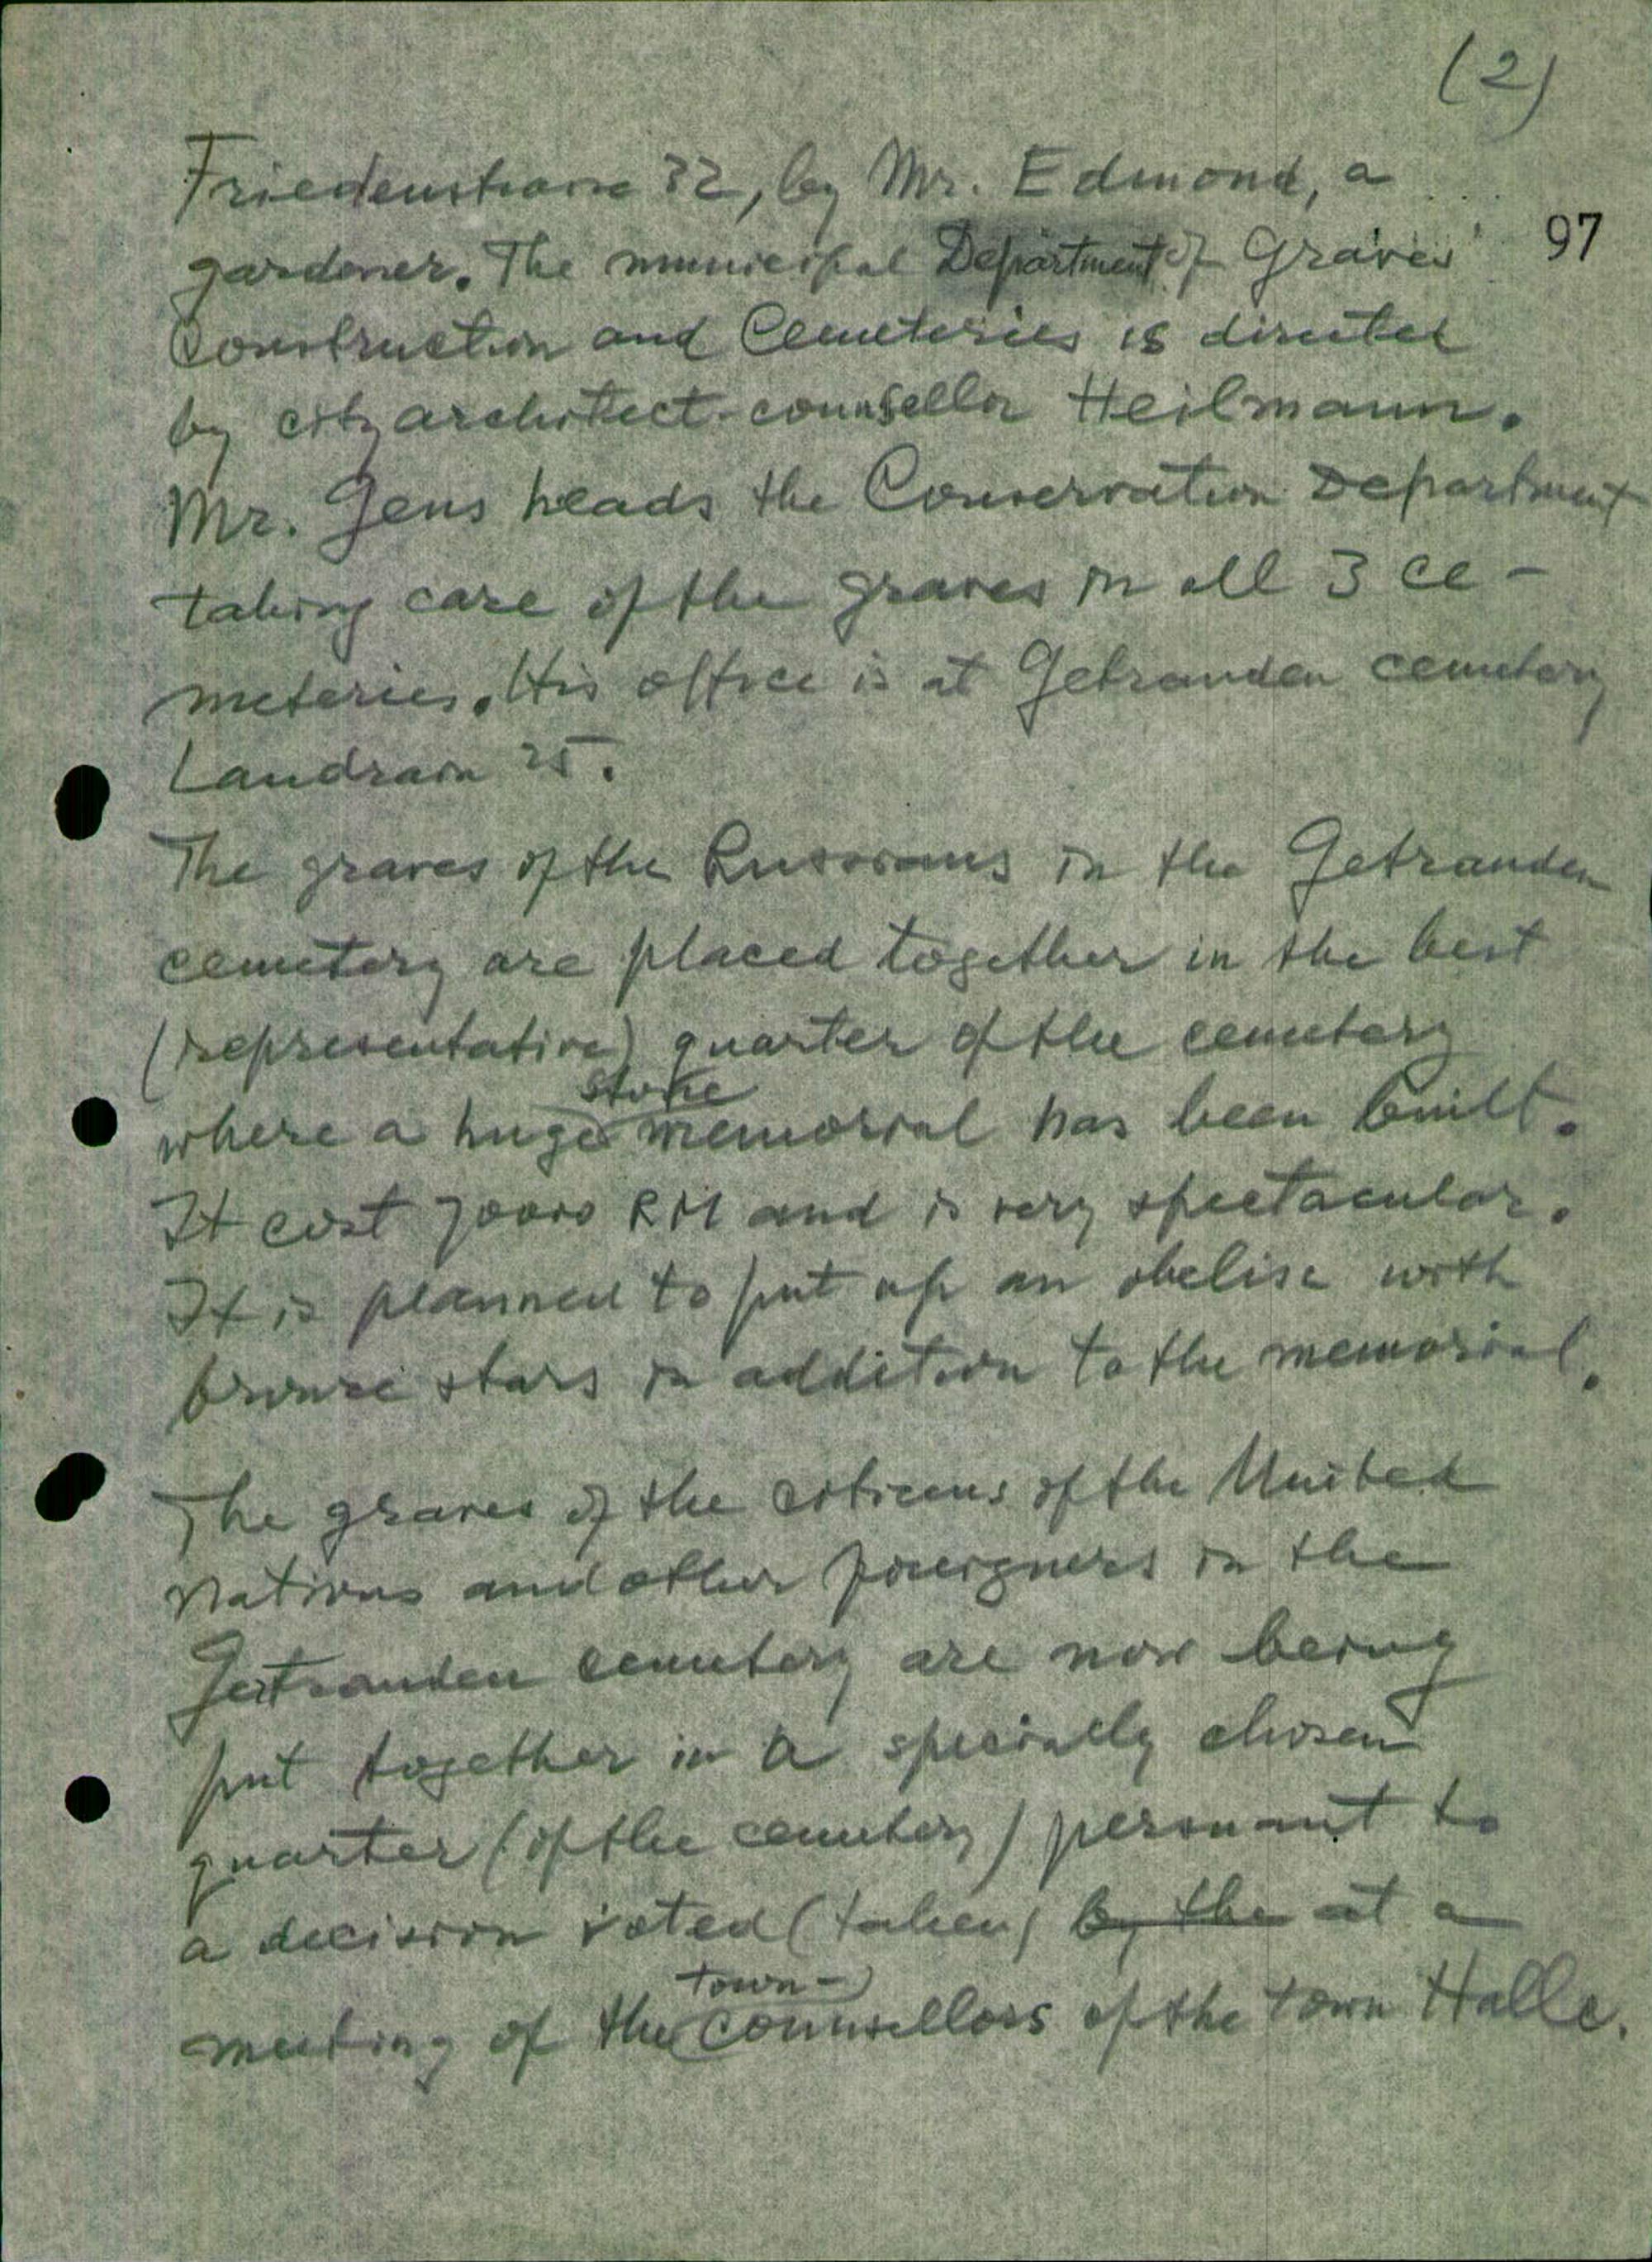 (2)
Friedenstrasse 32, by Mr. Edmond, a
97
gardener. The municipal Department of Graves
Construction and Cemeteries is directed
by city architect-counsellor Heilmann.
Mr. Jens heads the Conservation Department
taking care of the graves in all 3 ce-
meteries. His office is at Getrauden cemetery
Landrain 25.
The graves of the Russians in the Getrauden
cemetery are placed together in the best
(representative) quarter of the cemetery
stone
where a huge memorial has been built.
It cost 70000 RM and is very spectacular.
It is planned to put up an obelisc with
bronze stars in addition to the memorial.
The graves of the citizens of the United
Nations and other foreigners in the
Gertrauden cemetery are now being
put together in a specially chosen
quarter (of the cemetery) persuant to
a decision voted (taken) by the at a
town-
meeting of the counsellors of the town Halle.